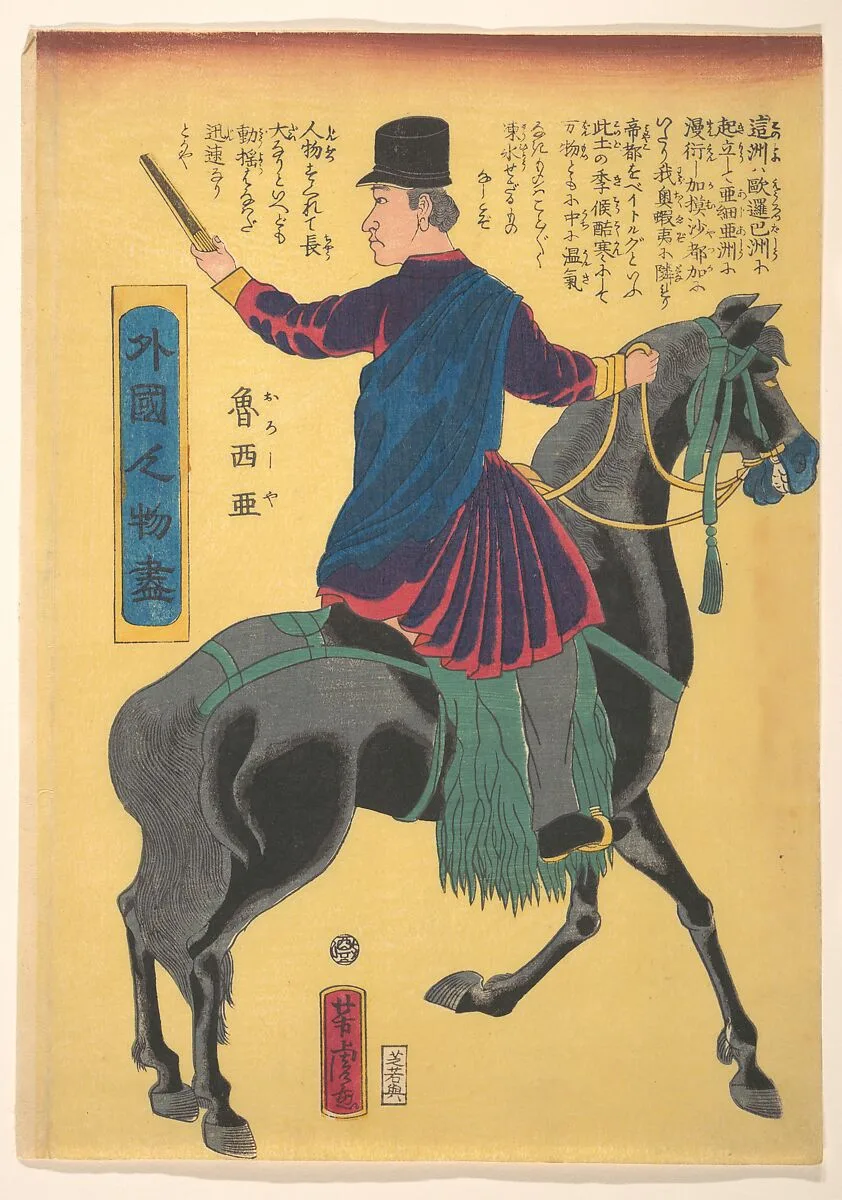 外國人物盡
魯西亜
おろしや
這洲ハ歐邏巴洲に
起立して亜細亜洲に
漫衍し加摸沙都加に
いたり我奥蝦夷に隣す
帝都をペイトルブグといふ
此土の季候酷寒にして
万物ともに中に温氣
凍氷せざるもの
なし
人物すぐれて長
大なりといへども
動揺
迅速なり
とかや
芳虎画
芝若與